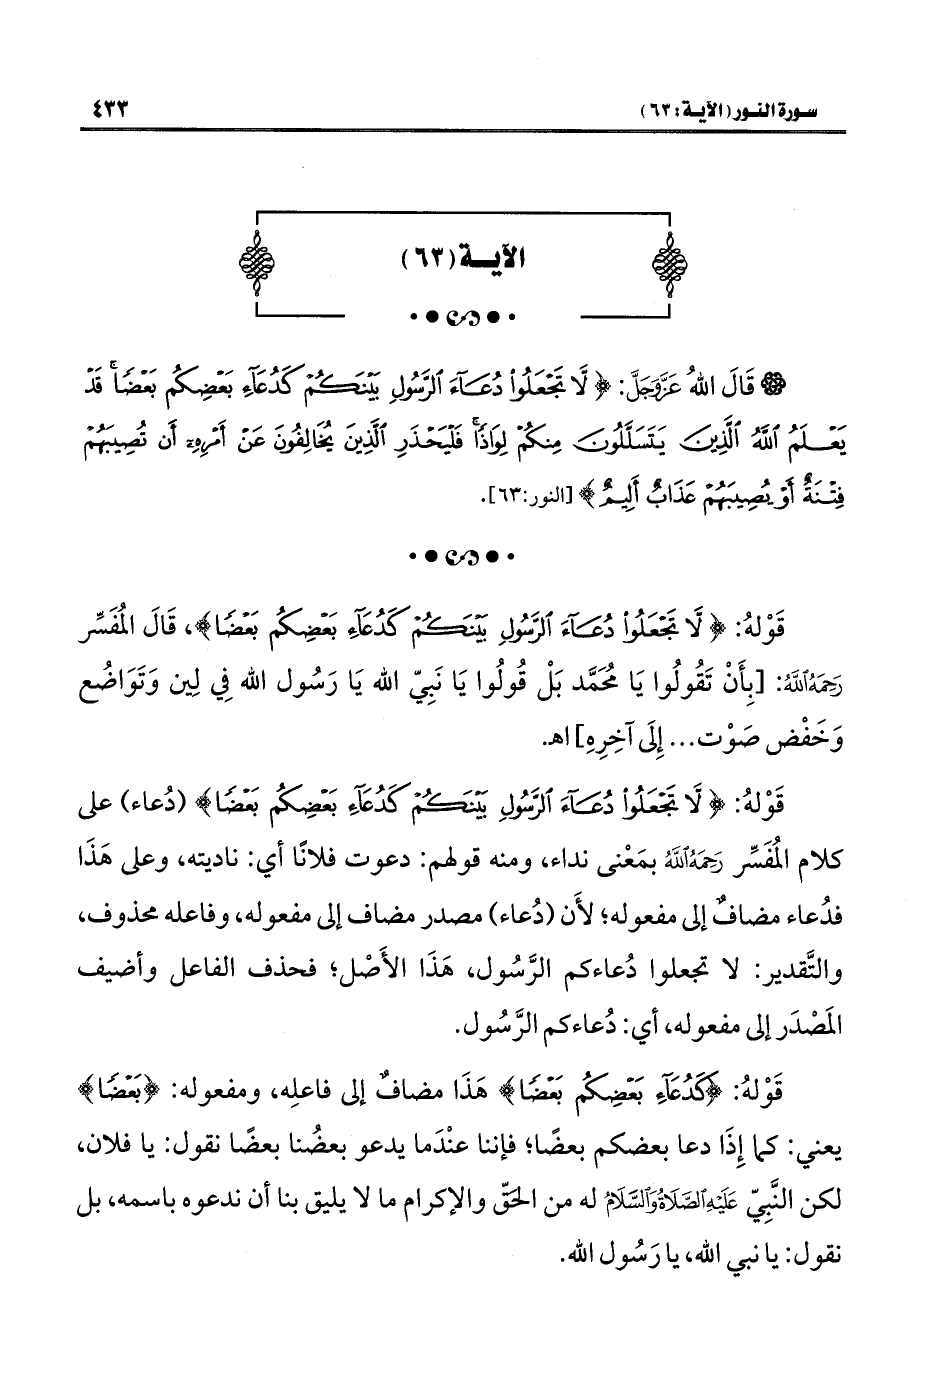 سورة النور (الآية: ٦٣)
٤٣٣
الآية (٦٣)
قَالَ اللهُ عَزَّوَجَلَّ: ﴿لَّا تَجْعَلُوا۟ دُعَآءَ ٱلرَّسُولِ بَيْنَكُمْ كَدُعَآءِ بَعْضِكُم بَعْضًا ۚ قَدْ
يَعْلَمُ ٱللَّهُ ٱلَّذِينَ يَتَسَلَّلُونَ مِنكُمْ لِوَاذًا ۚ فَلْيَحْذَرِ ٱلَّذِينَ يُخَالِفُونَ عَنْ أَمْرِهِۦٓ أَن تُصِيبَهُمْ
فِتْنَةٌ أَوْ يُصِيبَهُمْ عَذَابٌ أَلِيمٌ﴾ [النور:٦٣].
قَوْلهُ: ﴿لَّا تَجْعَلُوا۟ دُعَآءَ ٱلرَّسُولِ بَيْنَكُمْ كَدُعَآءِ بَعْضِكُم بَعْضًا﴾، قَالَ المُفَسِّر
رَحِمَهُ اللَّهُ: [بِأَنْ تَقُولُوا يَا مُحَمَّد بَلْ قُولُوا يَا نَبِيّ الله يَا رَسُول الله فِي لِين وَتَوَاضُع
وَخَفْض صَوْت... إِلَى آخِرِهِ] اهـ.
قَوْلهُ: ﴿لَّا تَجْعَلُوا۟ دُعَآءَ ٱلرَّسُولِ بَيْنَكُمْ كَدُعَآءِ بَعْضِكُم بَعْضًا﴾ (دُعاء) على
كلام المُفَسِّر رَحِمَهُ اللَّهُ بمَعْنى نداء، ومنه قولهم: دعوت فلانًا أي: ناديته، وعلى هَذَا
فدُعاء مضافٌ إلى مفعوله؛ لأن (دُعاء) مصدر مضاف إلى مفعوله، وفاعله محذوف،
والتَّقدير: لا تجعلوا دُعاءكم الرَّسُول، هَذَا الأَصْل؛ فحذف الفاعل وأضيف
المَصْدَر إلى مفعوله، أي: دُعاءكم الرَّسُول.
قَوْلهُ: ﴿كَدُعَآءِ بَعْضِكُم بَعْضًا﴾ هَذَا مضافٌ إلى فاعلِه، ومفعوله: ﴿بَعْضًا﴾
يعني: كما إِذَا دعا بعضكم بعضًا؛ فإننا عنْدَما يدعو بعضُنا بعضًا نقول: يا فلان،
لكن النَّبِيّ عَلَيْهِ الصَّلَاةُ وَالسَّلَامُ له من الحَقّ والإكرام ما لا يليق بنا أن ندعوه باسمه، بل
نقول: يا نبي الله، يا رَسُول الله.